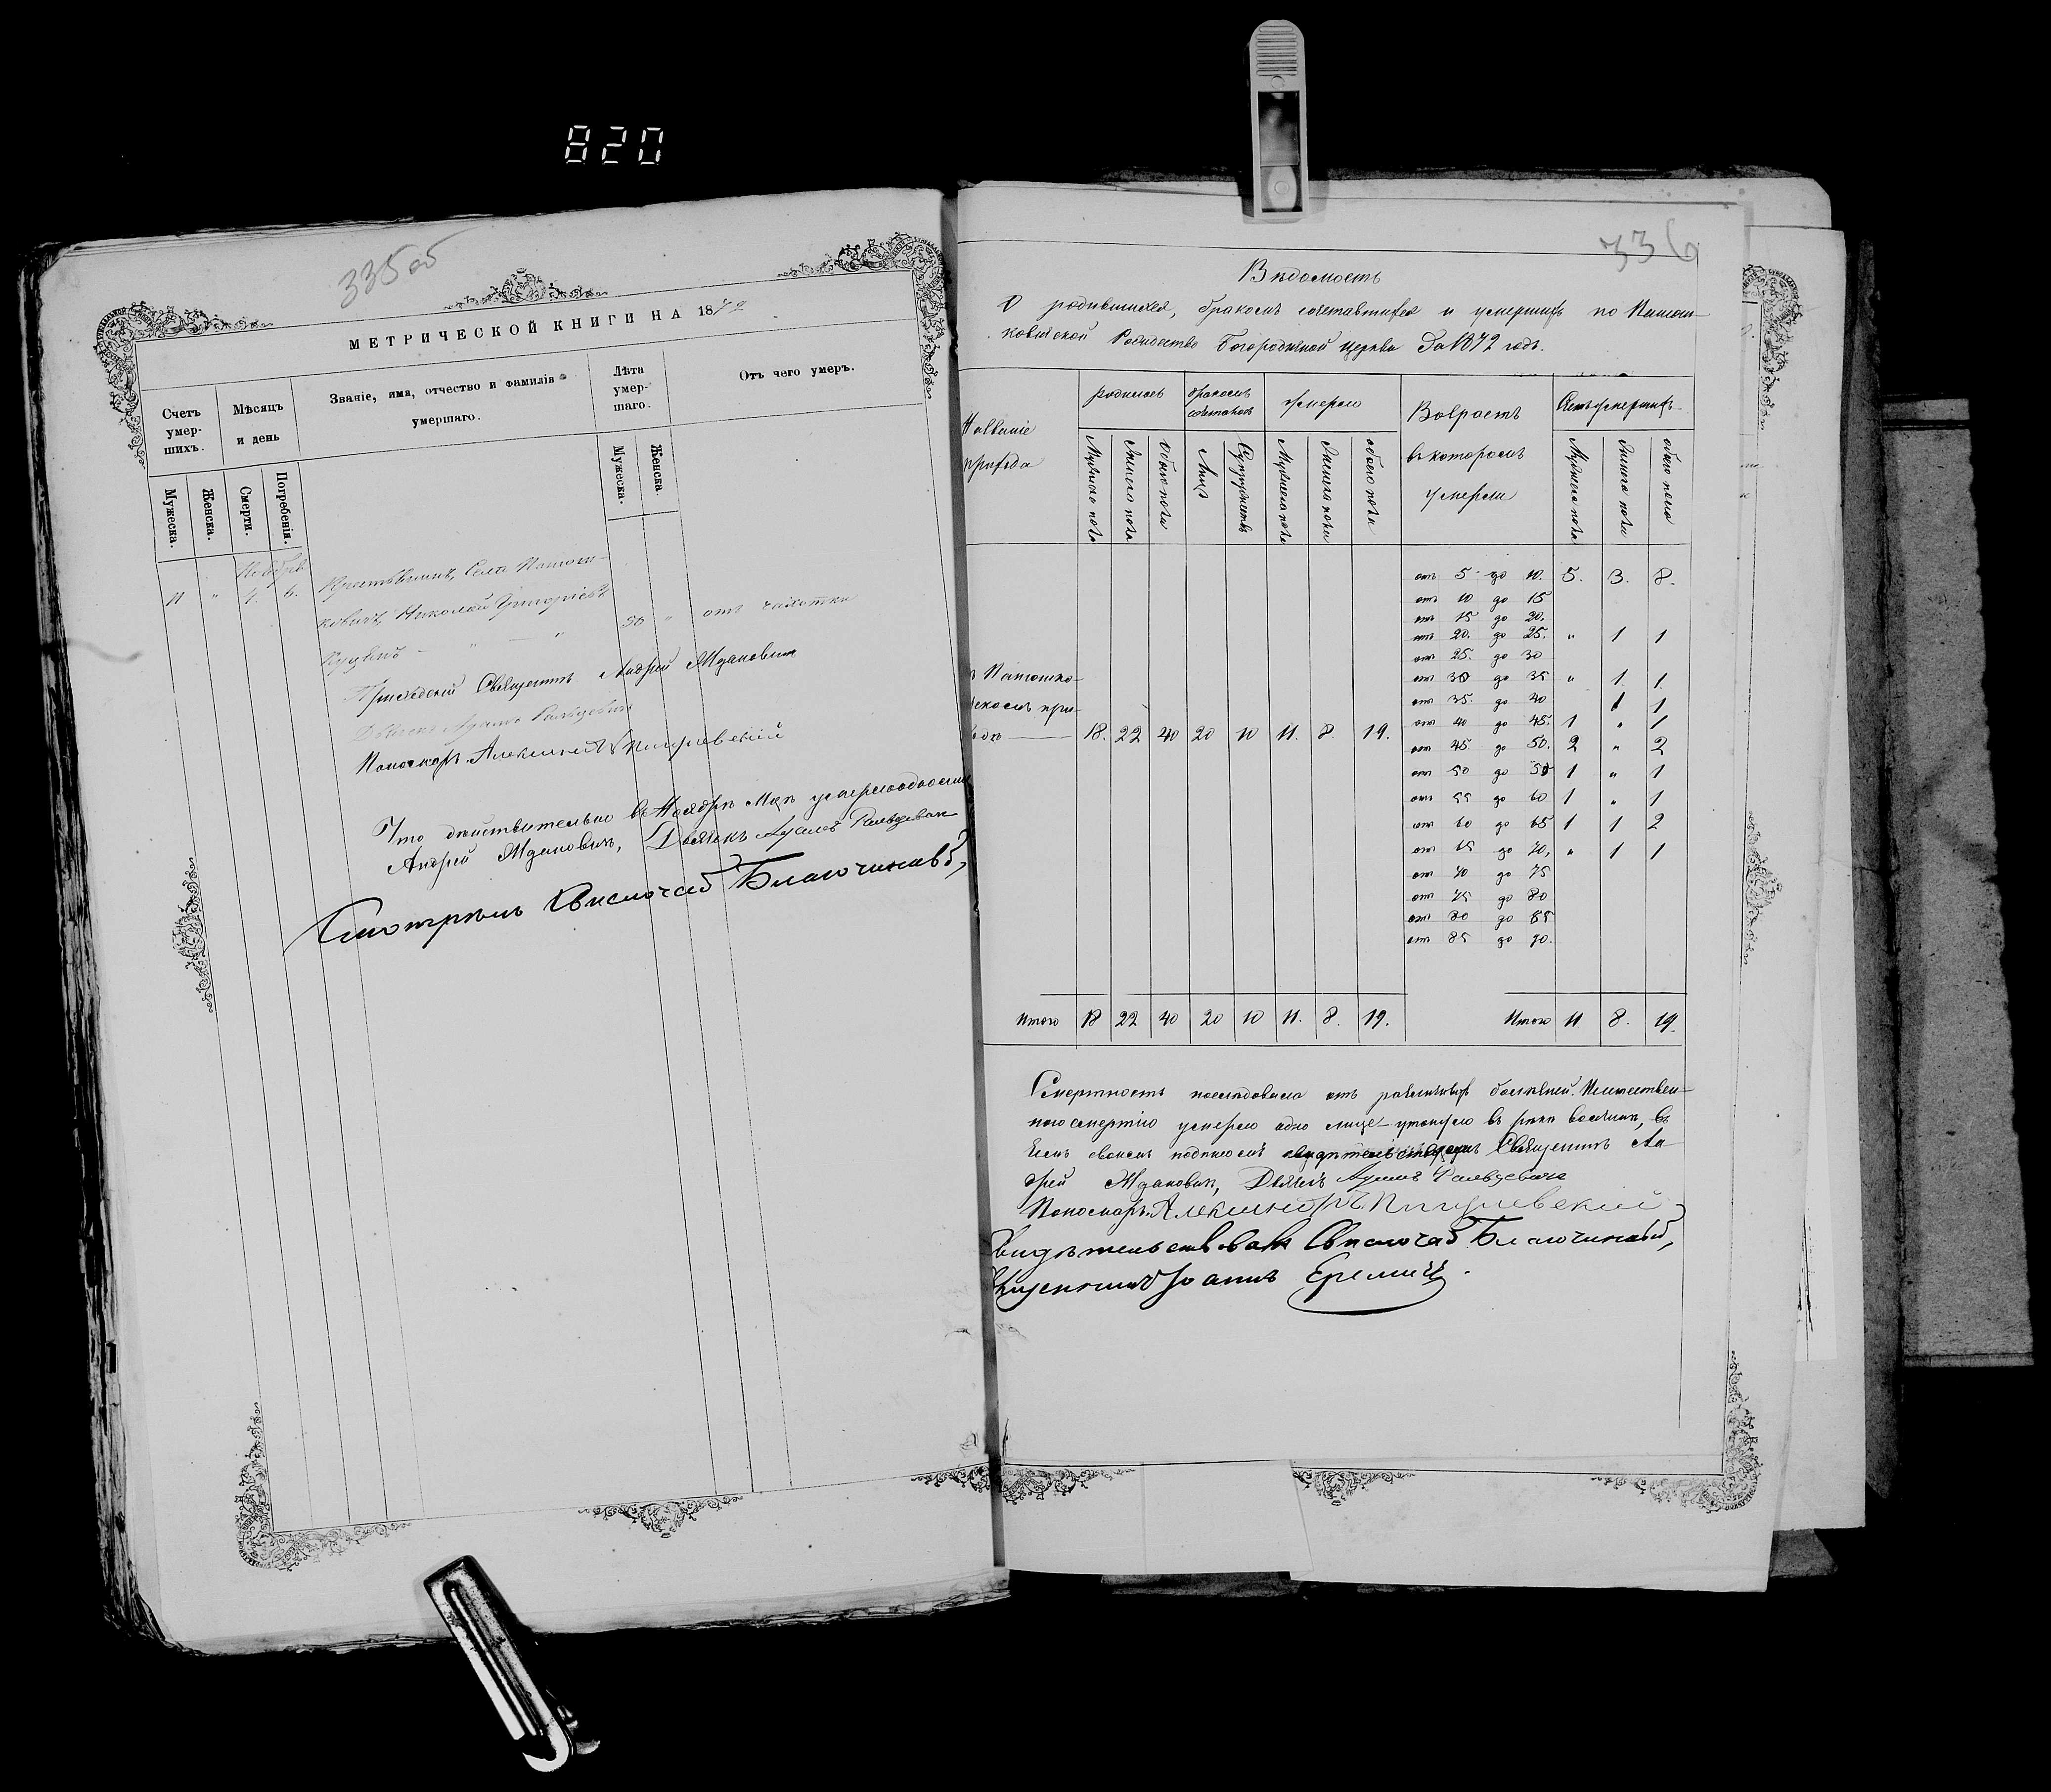 820
335 об
МЕТРИЧЕСКОЙ КНИГИ НА 1872
Счетъ умер-шихъ.
Мѣсяцъ и день
Званіе, имя, отчество и фамилія умершаго.
Лѣта умер-шаго.
Отъ чего умеръ.
Мужеска.
Женска.
Смерти.
Погребенія.
Мужеска.
Женска.
Ноябрь
11 " 4. 6. Крестьянинъ, Села
Николай Григорьевъ
50 " отъ чахотки
Приходскій Священникъ Андрей Ждановичъ
Дьячекъ
Пономарь Александръ
Что дѣйствительно въ Ноябрѣ Мцѣ умерло
Андрей Ждановичъ, Дьячекъ
Смотрѣлъ Свислочскій Благочинный,
336
Вѣдомость
О родившихся, бракомъ сочетавшихся и умершихъ по
Рождество Богородичной церкви за 1872 годъ.
Названіе прихода
родилось
бракомъ сочеталось
умерло
Возрастъ въ которомъ умерли
Мужескаго пола
Женскаго пола
Обоего пола
Лицъ
Супружествъ
Мужескаго пола
Женскаго пола
обоего пола
Мужескаго пола
Женскаго пола
обоего пола
отъ 5 до 10. 5. 3. 8.
отъ 10 до 15
отъ 15 до 20.
отъ 20. до 25. " 1 1
отъ 25. до 30
отъ 30 до 35 " 1. 1.
отъ 35. до 40 1 1
отъ 40 до 45. 1 " 1
отъ 45. до 50. 2 " 2
отъ 50 до 55 1 " 1
отъ 55 до 60 1 " 1
отъ 60 до 65 1 1 2
отъ 65 до 70, " 1 1
отъ 70 до 75
отъ 75 до 80
отъ 80 до 85
отъ 85 до 90.
18. 22 40 20 10 11. 8. 19.
Итого 18 22 40 20 10 11. 8. 19. Итого 11 8. 19.
Смертность послѣдовала отъ различныхъ болѣзней.
смертію умерло одно лице утонуло въ рѣкѣ въ
чемъ своимъ подписомъ свидѣтельствуемъ Священникъ Ан-
дрей Ждановичъ, Дьячекъ
Пономарь Александръ
Свидѣтельствовалъ Свислочскій Благочинный,
Священникъ Іоаннъ Еремичъ.